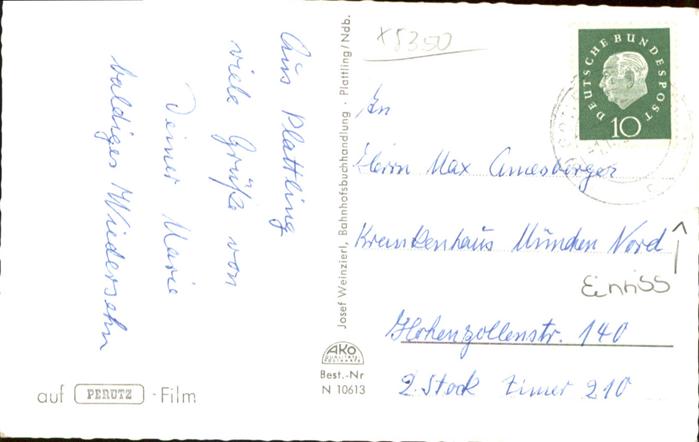 Aus Plattling
viele Grüße von
Deiner Marie
baldiges Wiedersehn
auf PERUTZ - Film
Josef Weinzierl, Bahnhofsbuchhandlung · Plattling/Ndb.
AKO
Best.-Nr
N 10613
x5350
DEUTSCHE BUNDESPOST
10
An
Herrn Max Amesberger
Krankenhaus München Nord
Einriss
Hohenzollenstr. 140
2. Stock Zimer 210